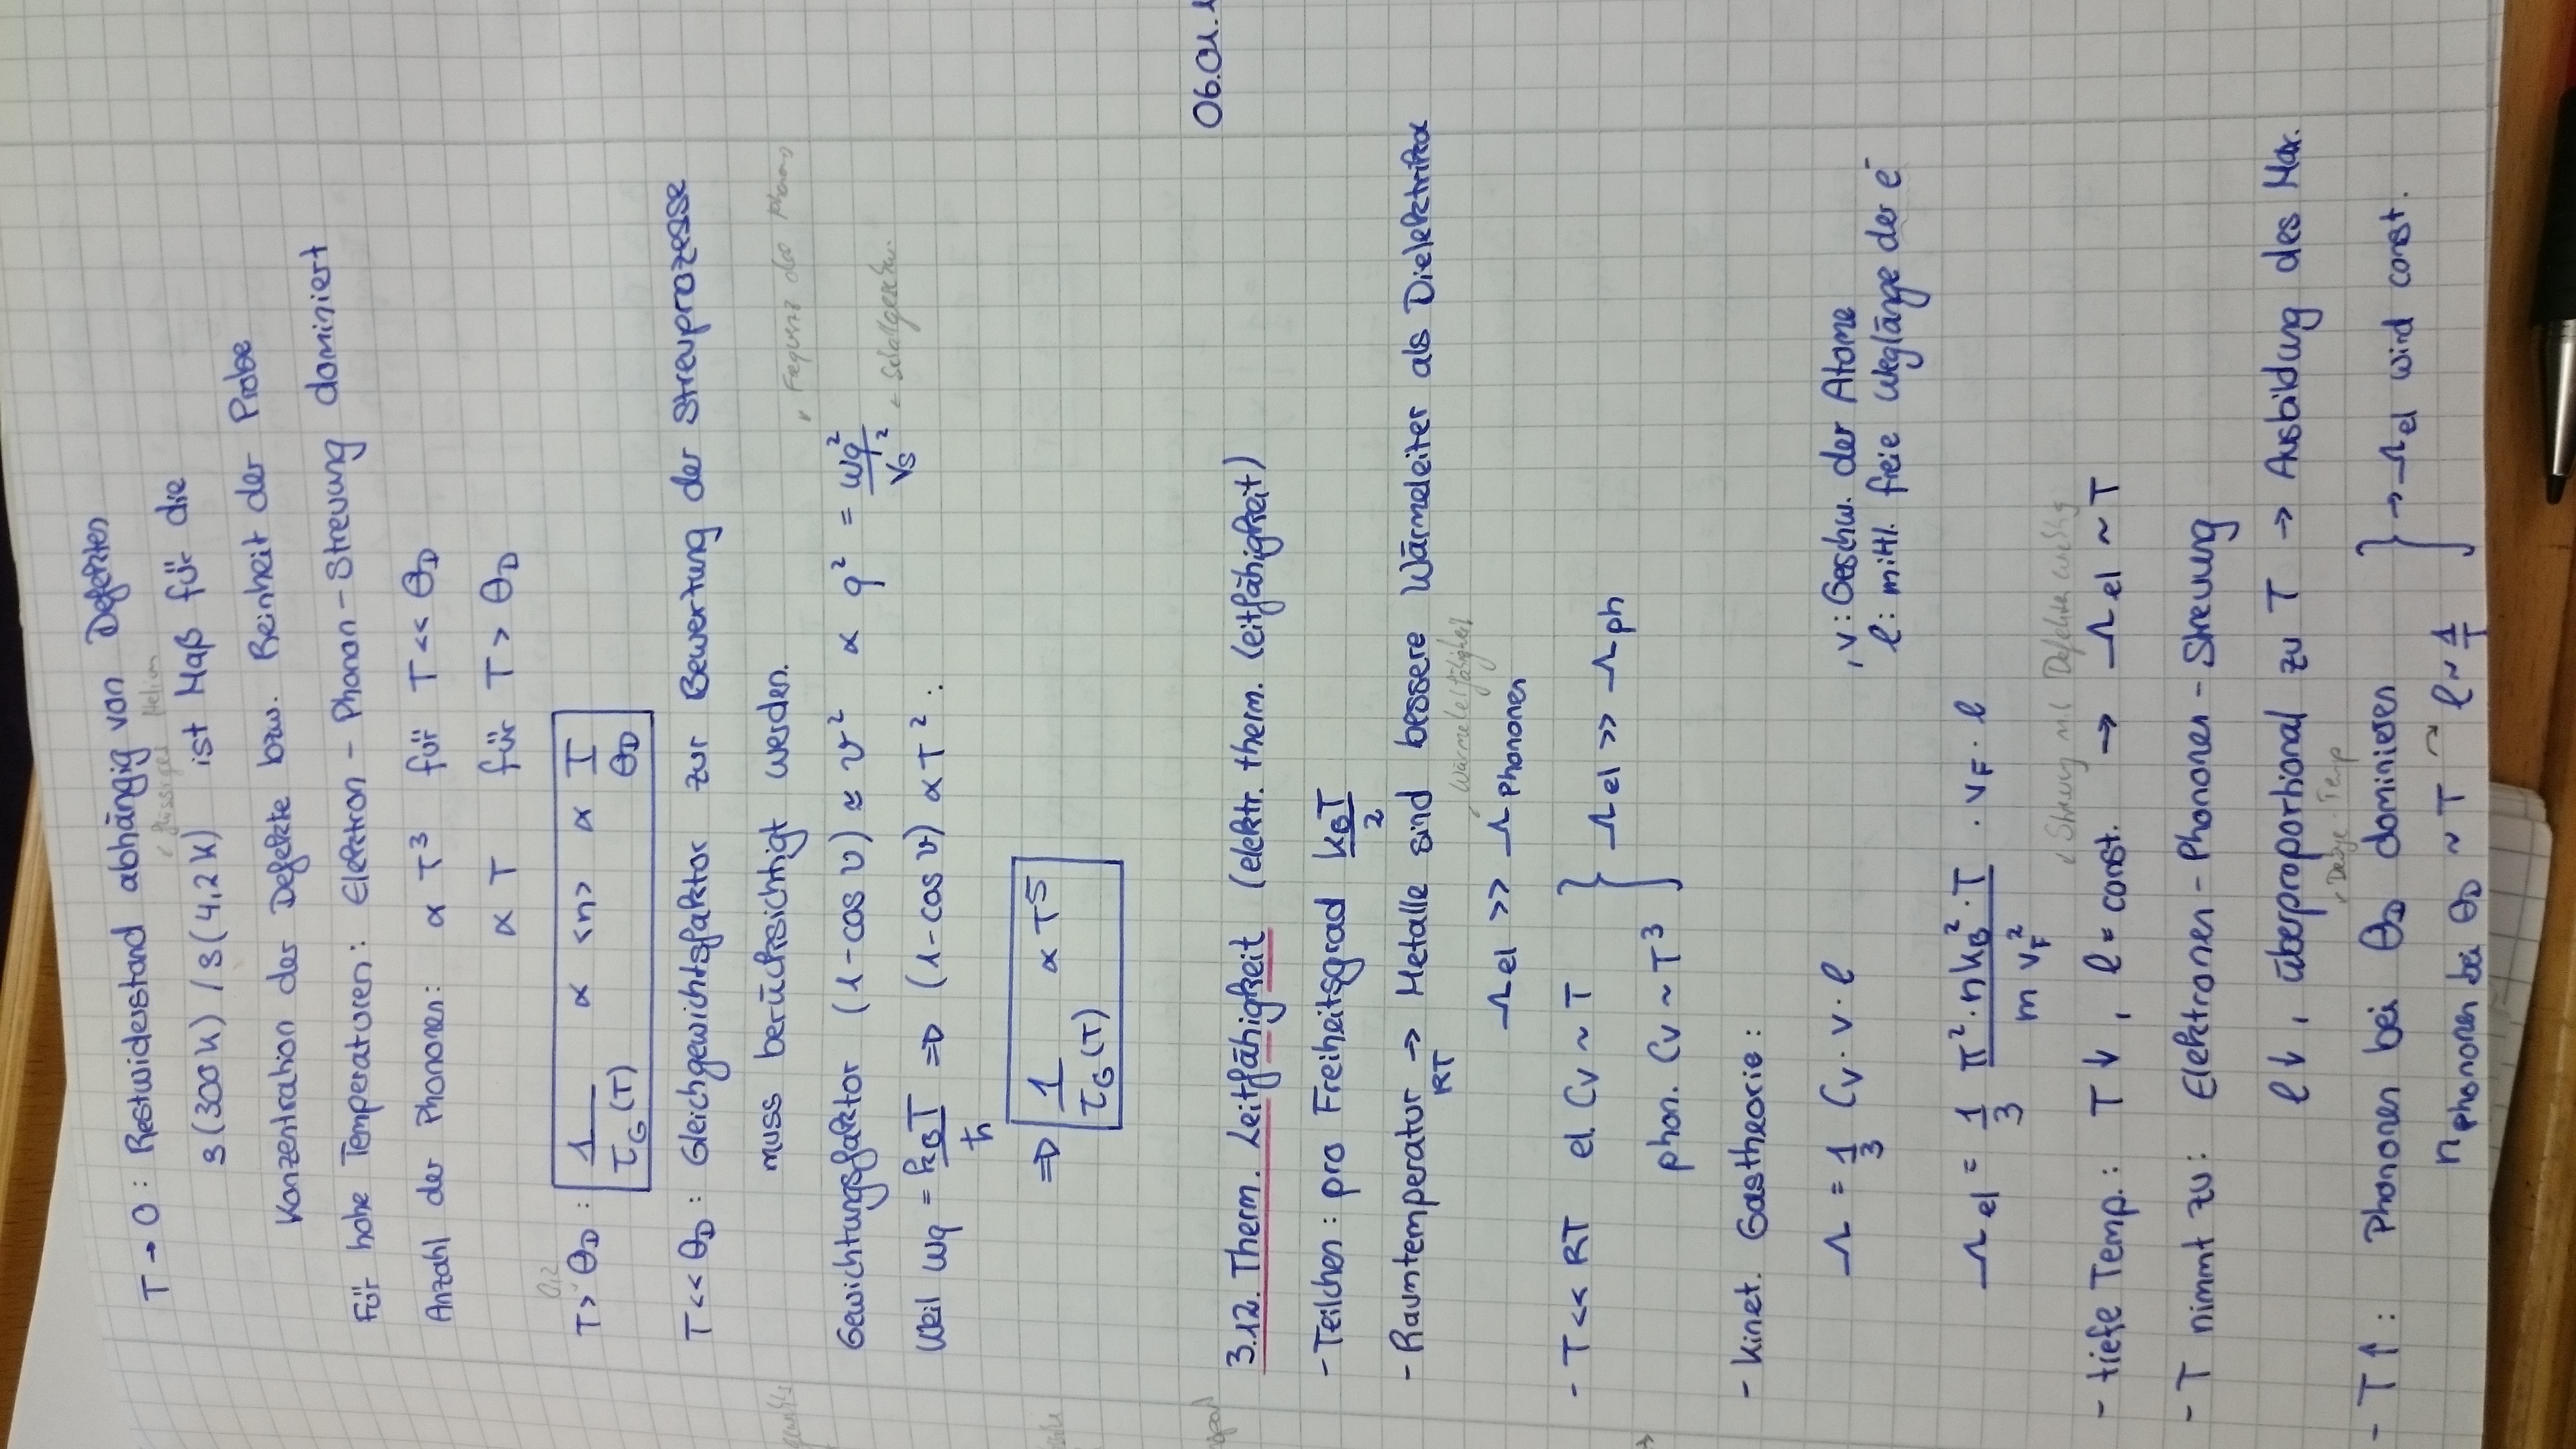 T → 0 : Restwiderstand abhängig von Defekten
↙ flüssiges Helium
ρ(300K) / ρ(4,2K) ist Maß für die
Konzentration der Defekte bzw. Reinheit der Probe
Für hohe Temperaturen: Elektron - Phonon - Streuung dominiert
Anzahl der Phononen: ∝ T³ für T << Θ_D
∝ T für T > Θ_D
0,2
T > Θ_D : 1/τ_G(T) ∝ <n> ∝ T/Θ_D
T << Θ_D : Gleichgewichtsfaktor zur Bewertung der Streuprozesse
muss berücksichtigt werden.
↙ Frequenz des Phonons
Gewichtungsfaktor (1-cos ϑ) ≈ ϑ² ∝ q² = ωq²/vs²
← Schallgeschw.
Weil ωq = k_BT/ħ ⇒ (1-cos ϑ) ∝ T² :
⇒ 1/τ_G(T) ∝ T⁵
06.01.1
3.12. Therm. Leitfähigkeit (elektr. therm. Leitfähigkeit)
- Teilchen : pro Freiheitsgrad k_BT/2
- Raumtemperatur → Metalle sind bessere Wärmeleiter als Dielektrika
RT
↙ Wärmeleitfähigkeit
Λ_el >> Λ_Phononen
- T << RT el. Cv ~ T
} Λ_el >> Λ_ph
phon. Cv ~ T³
- kinet. Gastheorie :
Λ = 1/3 Cv · v · ℓ , v : Geschw. der Atome
ℓ : mittl. freie Weglänge der e⁻
Λ_el = 1/3 π²·nk_B²·T/m v_F² · v_F · ℓ
↙ Streuung mit Defekten wichtig
- tiefe Temp. : T ↓ , ℓ = const. → Λ_el ~ T
- T nimmt zu : Elektronen - Phononen - Streuung
ℓ ↓ , überproportional zu T → Ausbildung des Max.
↙ Debye-Temp
- T ↑ : Phononen bei Θ_D dominieren
} → Λ_el wird const.
n_Phononen bei Θ_D ~ T ↷ ℓ ~ 1/T